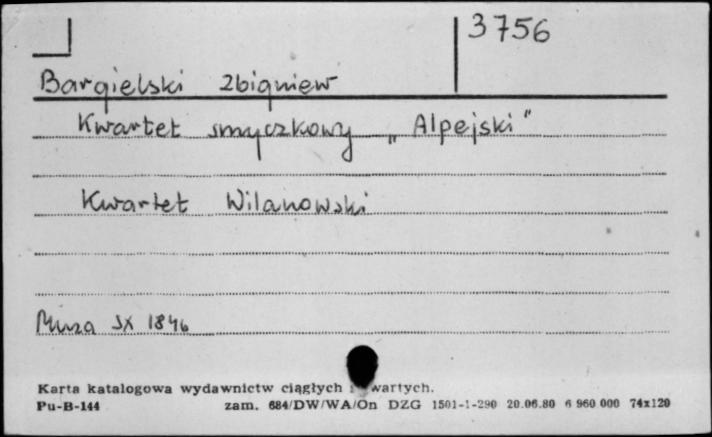 3756
Bargielski Zbigniew
Kwartet smyczkowy „Alpejski"
Kwartet Wilanowski
Muza SX 1846
Karta katalogowa wydawnictw ciągłych i zwartych.
Pu-B-144 zam. 684/DW/WA/On DZG 1501-1-290 20.06.80 6 960 000 74x120